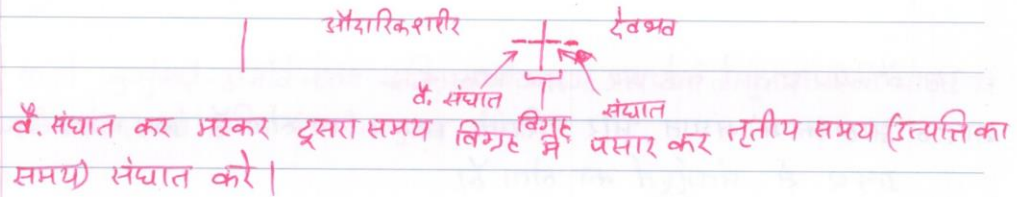 औदारिक शरीर देवभव
वै. संघात संघात
विग्रह
वै. संघात कर मरकर दूसरा समय विग्रह में पसार कर तृतीय समय (उत्पत्ति का
समय) संघात करे |